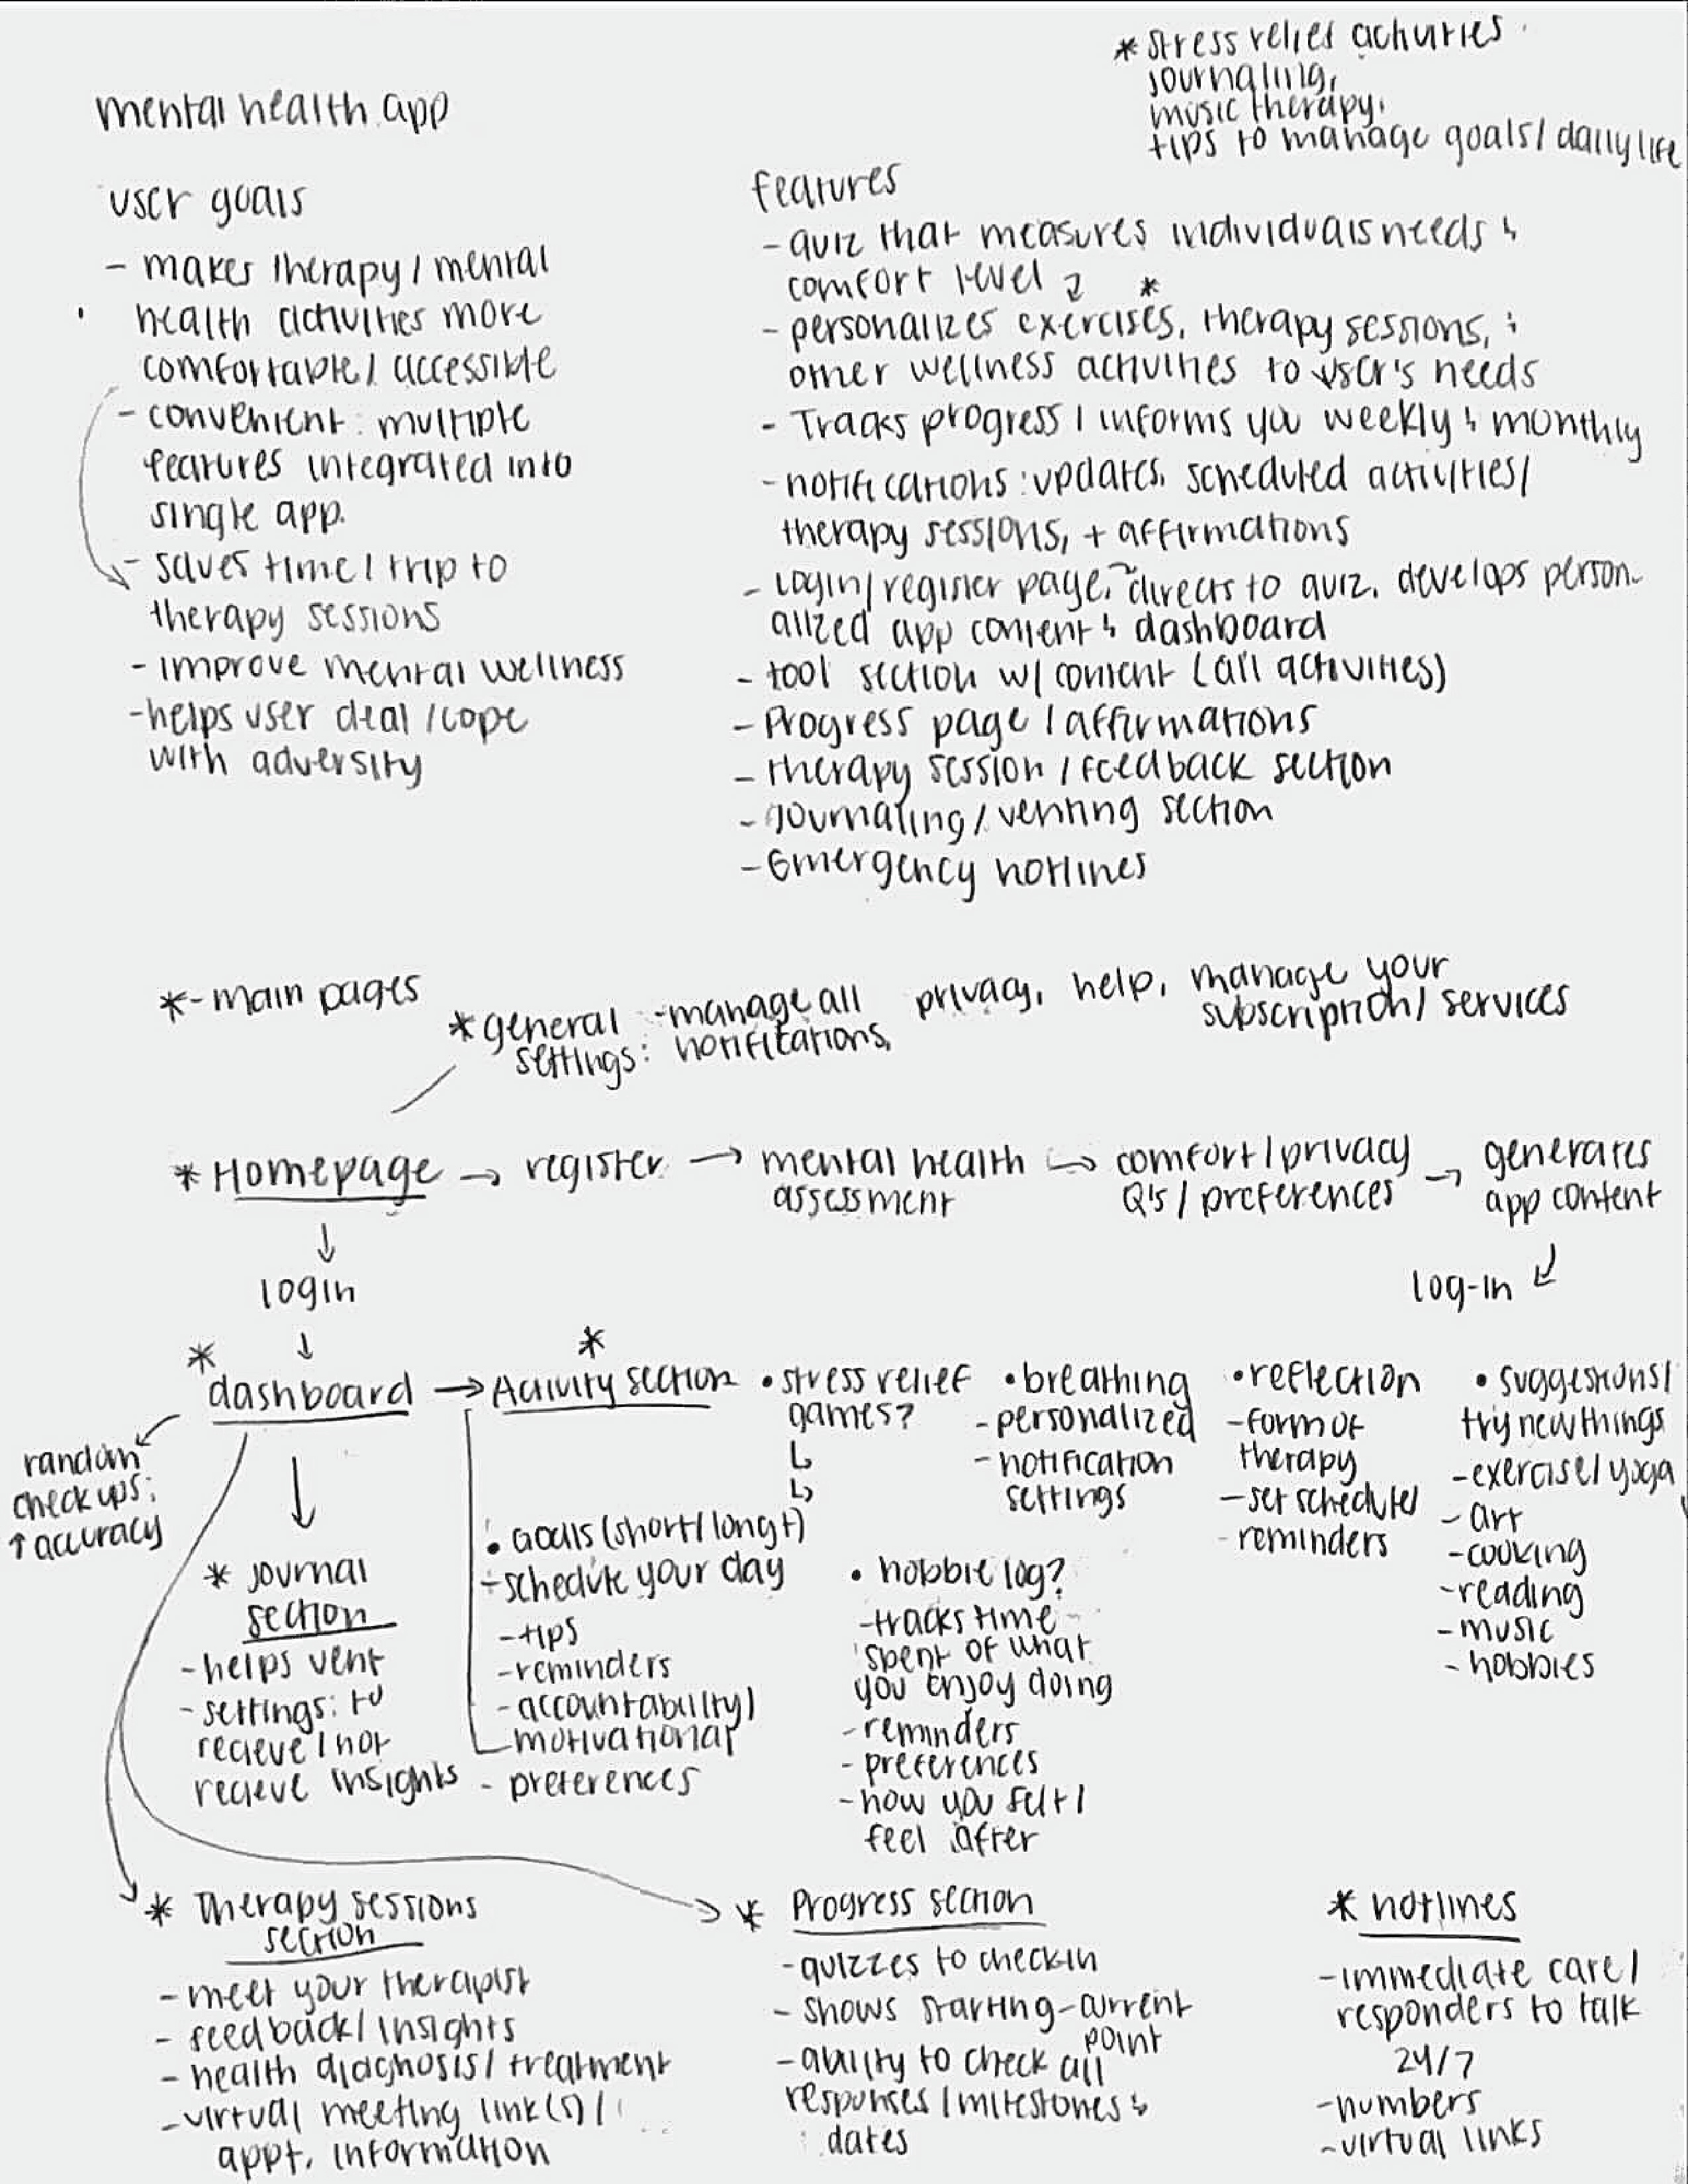 * stress relief activities
journaling,
music therapy,
tips to manage goals/daily life
mental health app
user goals
- makes therapy/mental
health activities more
comfortable/accessible
- convenient: multiple
features integrated into
single app.
- saves time/trip to
therapy sessions
- improve mental wellness
- helps user deal/cope
with adversity
features
- quiz that measures individuals needs &
comfort level
*
- personalizes exercises, therapy sessions, &
other wellness activities to user's needs
- Tracks progress/informs you weekly & monthly
- notifications: updates, scheduled activities/
therapy sessions, + affirmations
- Login/register page, ~directs to quiz, develops person-
alized app content & dashboard
- tool section w/ content (all activities)
- Progress page/affirmations
- therapy session/feedback section
- Journaling/venting section
- Emergency hotlines
* - main pages
* general settings: - manage all notifications, privacy, help, manage your
subscription/services
* Homepage → register → mental health
assessment → comfort/privacy
Q's/preferences → generates
app content
↓
login
log-in
↓
* dashboard → * Activity section
random
check ups:
↑ accuracy
• stress relief
games?
• breathing
- personalized
- notification
settings
• reflection
- form of
therapy
- set schedule/
- reminders
• suggestions/
try new things
- exercise/yoga
- art
- cooking
- reading
- music
- hobbies
* Journal
section
- helps vent
- settings: to
recieve/not
recieve insights
• Goals (short/long t)
- schedule your day
- tips
- reminders
- accountability/
motivational
- preferences
• hobbie log?
- tracks time
spent of what
you enjoy doing
- reminders
- preferences
- how you felt/
feel after
* Therapy sessions
section
- meet your therapist
- feedback/insights
- health diagnosis/treatment
- virtual meeting link(s)/
appt. information
* Progress section
- quizzes to check in
- shows starting-current
point
- ability to check all
responses/milestones &
dates
* hotlines
- immediate care/
responders to talk
24/7
- numbers
- virtual links